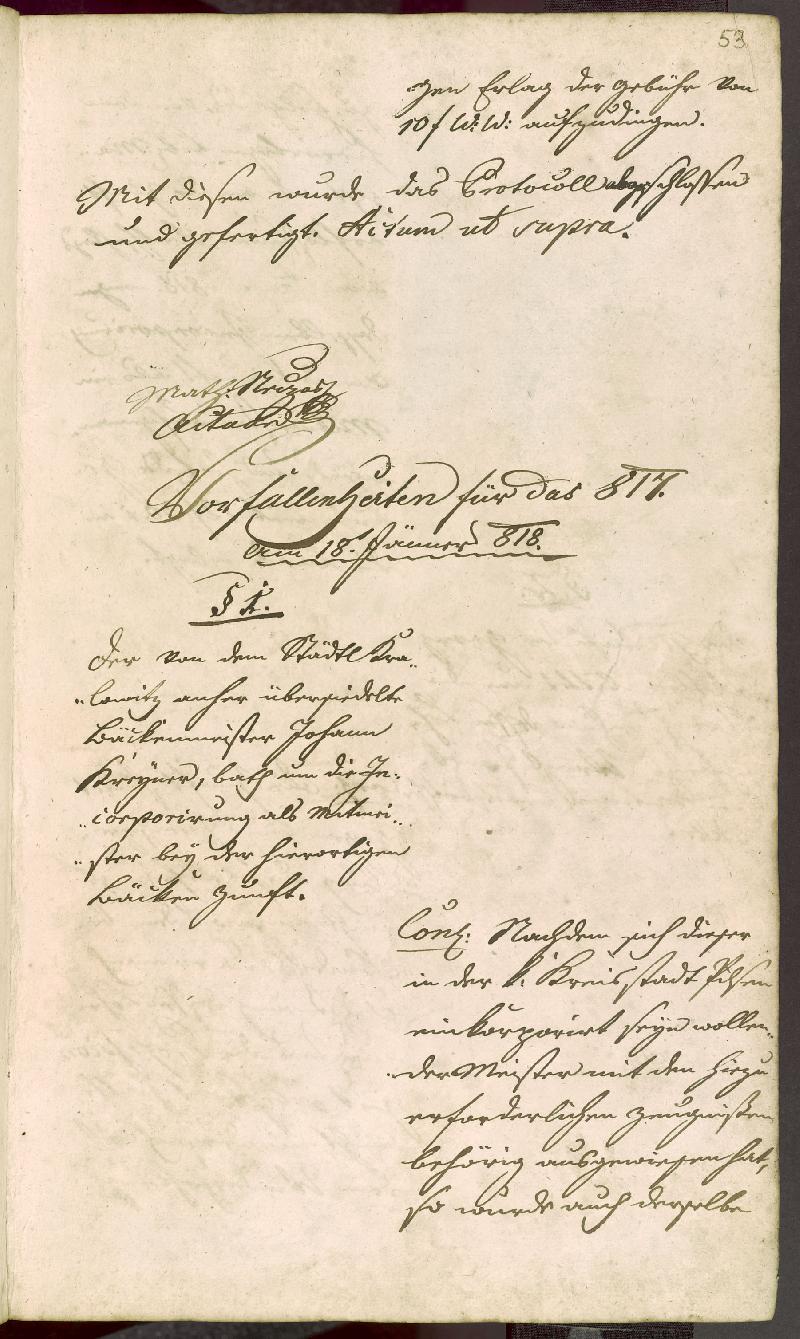 53
gen Erlag der Gebühr von
10 f W: W: aufzudingen.
Mit diesen wurde das Protocoll abgeschlossen
und gefertigt. Actum ut supra.
Math:
Vorfallenheiten für das 817.
Am 18t. Jänner 818.
§ 1.
Der von dem Städtl Kra„
„lowitz anher übersiedelte
Bäckenmeister Johann
Kreyner, bath um die In„
„corporirung als Mitmei„
„ster bey der hierortigen
Bäcken Zunft.
Concl: Nachdem sich dieser
in der k: Kreisstadt Pilsen
einkorporirt seyn wollen„
„der Meister mit den hiezu
erforderlichen Zeugnißen
behörig ausgewiesen hat,
so wurde auch derselbe